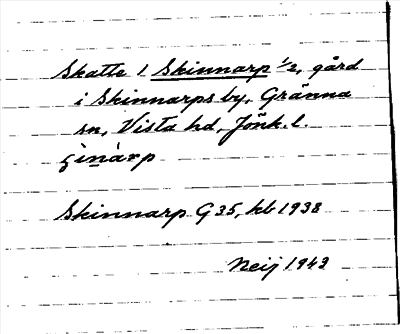 Skatte 1 Skinnarp 1/2, gård
i Skinnarps by, Gränna
sn, Vista hd, Jönk. l.
ʂìnàrp
Skinnarp G35, kb 1938
Neij 1943